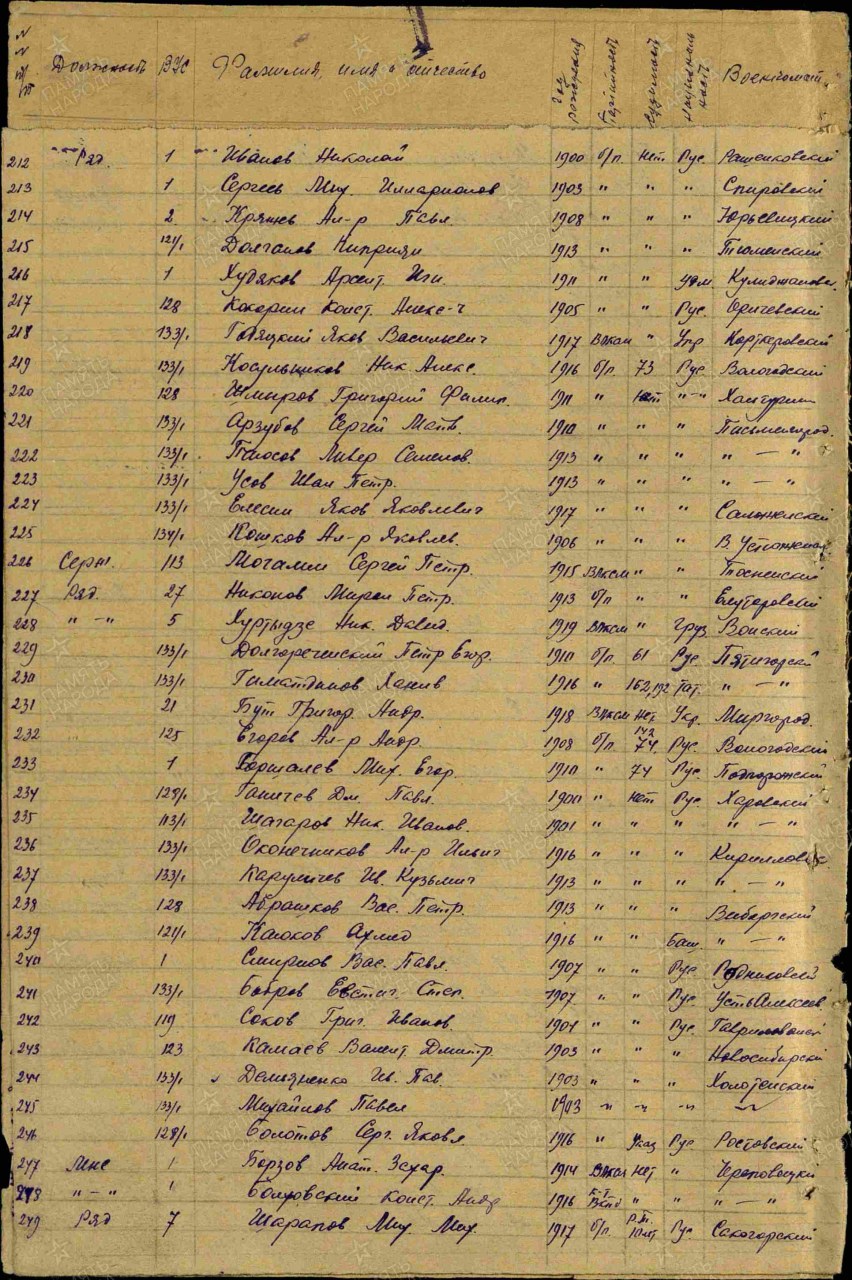 № № п/п Должность ВУС Фамилия, имя и отчество Год рождения Партийность Судимость Национальность Военкомат
212 Ряд. 1 Иванов Николай 1900 б/п Нет Рус.
213 1 Сергеев Мих. Илларионов 1903 " " " Спировский
214 2 Ал-р Павл. 1908 " " " Юрьевицкий
215 121/1 Долганов Киприян 1913 " " " Тюменский
216 1 Худяков Арсент. Игн. 1911 " " удм.
217 128 Кокорин Конст. Алекс-ч 1905 " " Рус. Оричевский
218 133/1 Яков Васильевич 1917 " Укр
219 133/1 Косульников Ник. Алекс. 1916 б/п 73 Рус. Вологодский
220 128 Шмыров Григорий Филип. 1911 " Нет "-"
221 133/1 Арзубов Сергей Матв. 1910 " " "
222 133/1 Семенов. 1913 " " " " — "
223 133/1 Усов Иван Петр. 1913 " " " " — "
224 133/1 Елесин Яков Яковлевич 1917 " " "
225 134/1 Кошков Ал-р Яковлев. 1906 " " "
226 Серж. 113 Мочалин Сергей Петр. 1915 Влксм " " Тосненский
227 Ряд. 27 Никонов Мирон Петр. 1913 б/п " "
228 " — " 5 Ник. Давид. 1919 Влксм " Груз.
229 133/1 Долгореченский Петр Егор. 1910 б/п 61 Рус Пятигорский
230 133/1 Гиматдинов Ханив 1916 " 162,192 Тат. " — "
231 21 Бут Григор. Андр. 1918 Влксм Нет Укр. Миргород.
232 125 Егоров Ал-р Андр. 1908 б/п 74. Рус. Вологодский
233 1 Мих. Егор. 1910 " 74 Рус Подпорожский
234 128/1 Ганичев Дм. Павл. 1900 " Нет Рус Харовский
235 113/1 Шагаров Ник. Иванов. 1901 " " " " — "
236 133/1 Оконечников Ал-р Ильич 1916 " " "
237 133/1 Каруличев Ив. Кузьмич 1913 " " " " — "
238 128 Абрашков Вас. Петр. 1913 " " " Выборгский
239 121/1 Каюков Ахмед 1916 " " Баш. " — "
240 1 Смирнов Вас. Павл. 1907 " " Рус Родниковский
241 133/1 Бобров Евстиг. Степ. 1907 " " Рус. Усть Алексеев.
242 119 Соков Григ. Иванов. 1904 " " Рус.
243 123 Камаев Валент. Дмитр. 1903 " " " Новосибирский
244 133/1 Демьяненко Ив. Пав. 1903 " " "
245 133/1 Михайлов Павел 1903 " " -"- -"-
246 128/1 Болотов Серг. Яковл. 1916 " Указ Рус Ростовский
247 1 Борзов Анат. Захар. 1914 Нет " Череповецкий
248 " — " " Конст. Андр. 1916 " " " — "
249 Ряд 7 Шарапов Мих. Мих. 1917 б/п Рус.